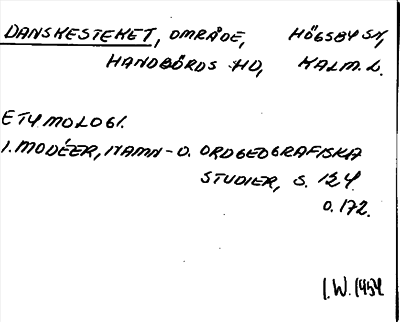 DANSKESTEKET, OMRÅDE, HÖGSBY SN,
HANDBÖRDS HD, KALM. L.
ETYMOLOGI.
I. MODÉER, NAMN- O. ORDGEOGRAFISKA
STUDIER, S. 124
O. 172.
I.W. 1954